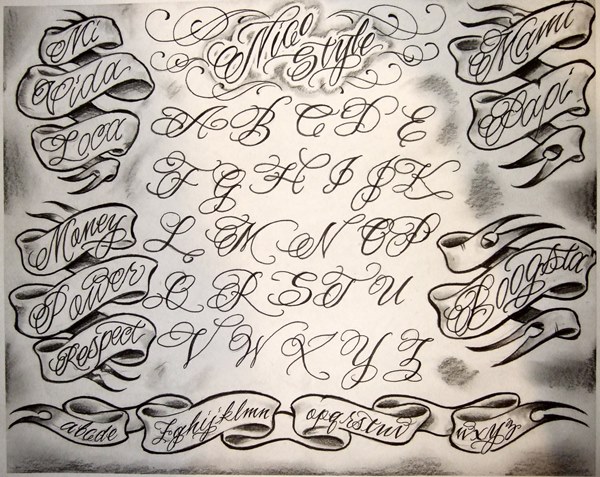 Mi
Vida
Loca
Nico
Style
Mami
Papi
A B C D E
F G H I J K
L M N O P
Q R S T U
V W X Y Z
Money
Power
Respect
Boogsta
abcde
fghijklmn
opqrstuv
wxyz